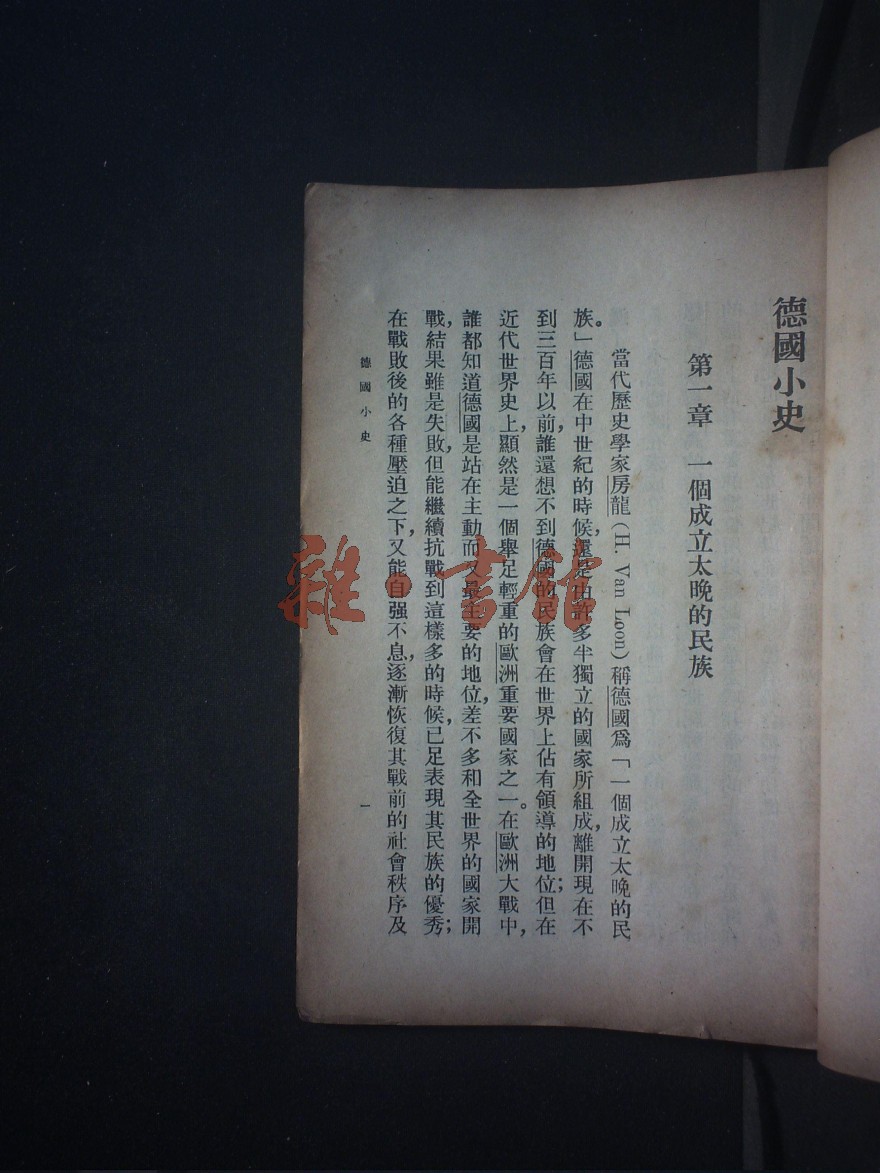 德國小史
第一章 一個成立太晚的民族
當代歷史學家房龍(H. Van Loon)稱德國爲「一個成立太晚的民
族。」德國在中世紀的時候,還是由許多半獨立的國家所組成,離開現在不
到三百年以前,誰還想不到德國的民族會在世界上佔有領導的地位;但在
近代世界史上,顯然是一個舉足輕重的歐洲重要國家之一。在歐洲大戰中,
誰都知道德國是站在主動而又最主要的地位,差不多和全世界的國家開
戰,結果雖是失敗,但能繼續抗戰到這樣多的時候,已足表現其民族的優秀;
在戰敗後的各種壓迫之下,又能自强不息,逐漸恢復其戰前的社會秩序及
德國小史
一
雜·書館